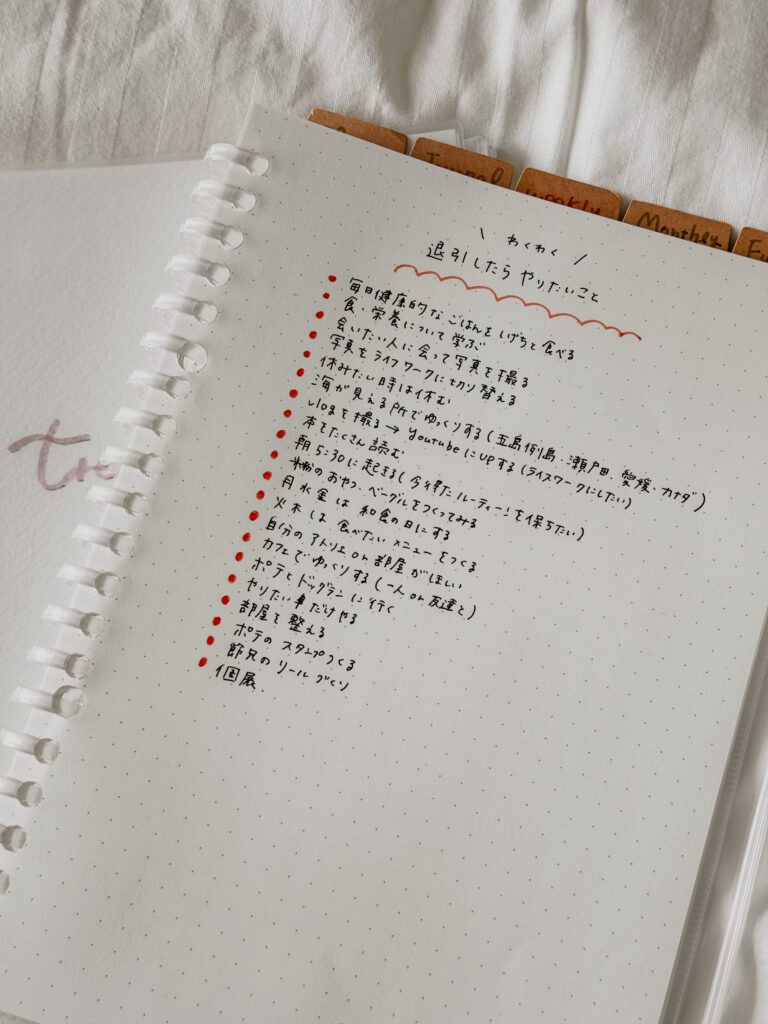 Journal
Weekly
Monthly
\ わくわく /
退引したら やりたいこと
毎日健康的な ごはんを しげちと 食べる
食・栄養について 学ぶ
会いたい人に会って写真を撮る
写真をライフワークに切り替える
休みたい時は休む
海が見える所でゆっくりする(五島列島・瀬戸田、愛媛・カナダ)
vlogを撮る→youtubeにUPする(ライスワークにしたい)
本をたくさん読む
朝5:30に起きる(今得たルーティーンを保ちたい)
米粉のおやつ、ベーグルをつくってみる
月水金は 和食の日にする
火木は 食べたい メニューをつくる
自分の アトリエ or 部屋がほしい
カフェで ゆっくりする(一人 or 友達と)
ポテとドッグランに行く
やりたい事だけやる
部屋を整える
ポテの スタンプつくる
節兄の リールづくり
個展
tra